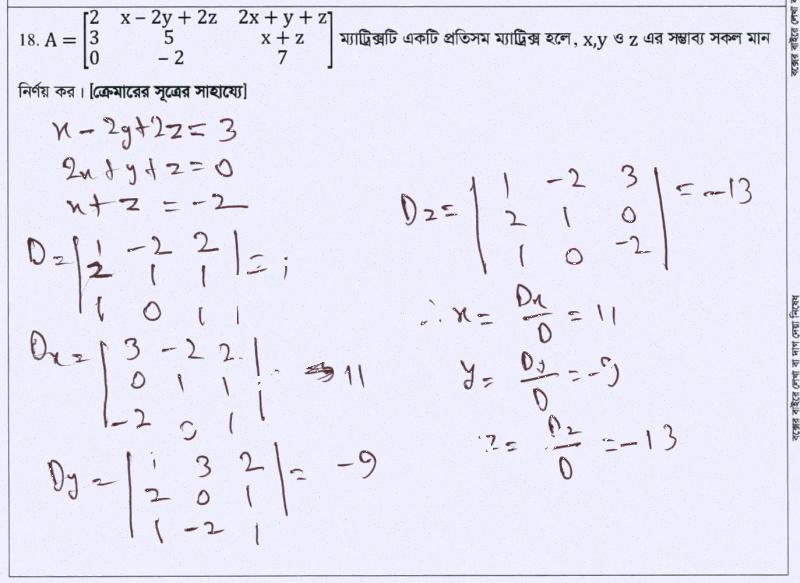 18. A = [2 x − 2y + 2z 2x + y + z
3 5 x + z
0 − 2 7] ম্যাট্রিক্সটি একটি প্রতিসম ম্যাট্রিক্স হলে, x,y ও z এর সম্ভাব্য সকল মান
নির্ণয় কর। [ক্রেমারের সূত্রের সাহায্যে]
x − 2y + 2z = 3
2x + y + z = 0
x + z = −2
D = | 1 −2 2 | = 1
2 1 1
1 0 1
Dx = | 3 −2 2 | = 11
0 1 1
−2 0 1
Dy = | 1 3 2 | = −9
2 0 1
1 −2 1
Dz = | 1 −2 3 | = −13
2 1 0
1 0 −2
∴ x = Dx/D = 11
y = Dy/D = −9
z = Dz/D = −13
বক্সের বাইরে লেখা বা দাগ দেয়া নিষেধ
বক্সের বাইরে লেখা ব